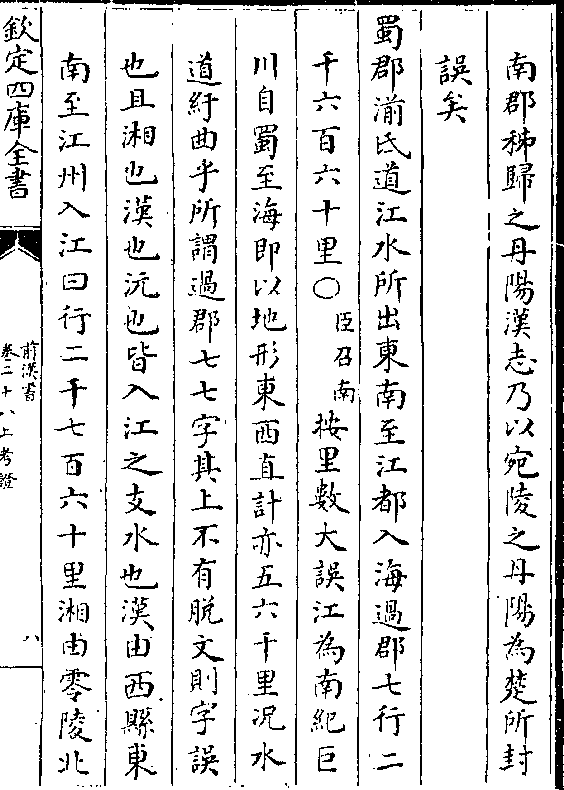 南郡秭歸之丹陽漢志乃以宛陵之丹陽為楚所封
誤矣
蜀郡湔氐道江水所出東南至江都入海過郡七行二
千六百六十里○臣召南按里數大誤江為南紀巨
川自蜀至海即以地形東西直計亦五六千里況水
道紆曲乎所謂過郡七七字其上不有脱文則字誤
也且湘也漢也沅也皆入江之支水也漢由西縣東
南至江州入江曰行二千七百六十里湘由零陵北
欽定四庫全書
前漢書
卷二十八上考證
八